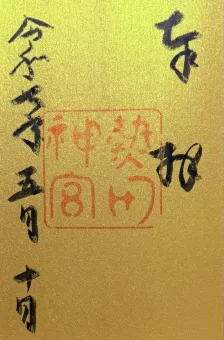 奉拝
熱田
神宮
令和七年五月十日